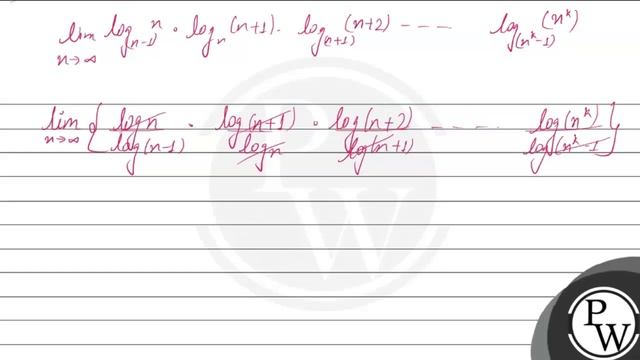 lim n→∞ log_(n-1) n · log_n (n+1) · log_(n+1) (n+2) ---- log_(n^k-1) (n^k)
lim n→∞ { log n / log(n-1) · log(n+1) / log n · log(n+2) / log(n+1) ---- log(n^k) / log(n^k-1 }
P
W